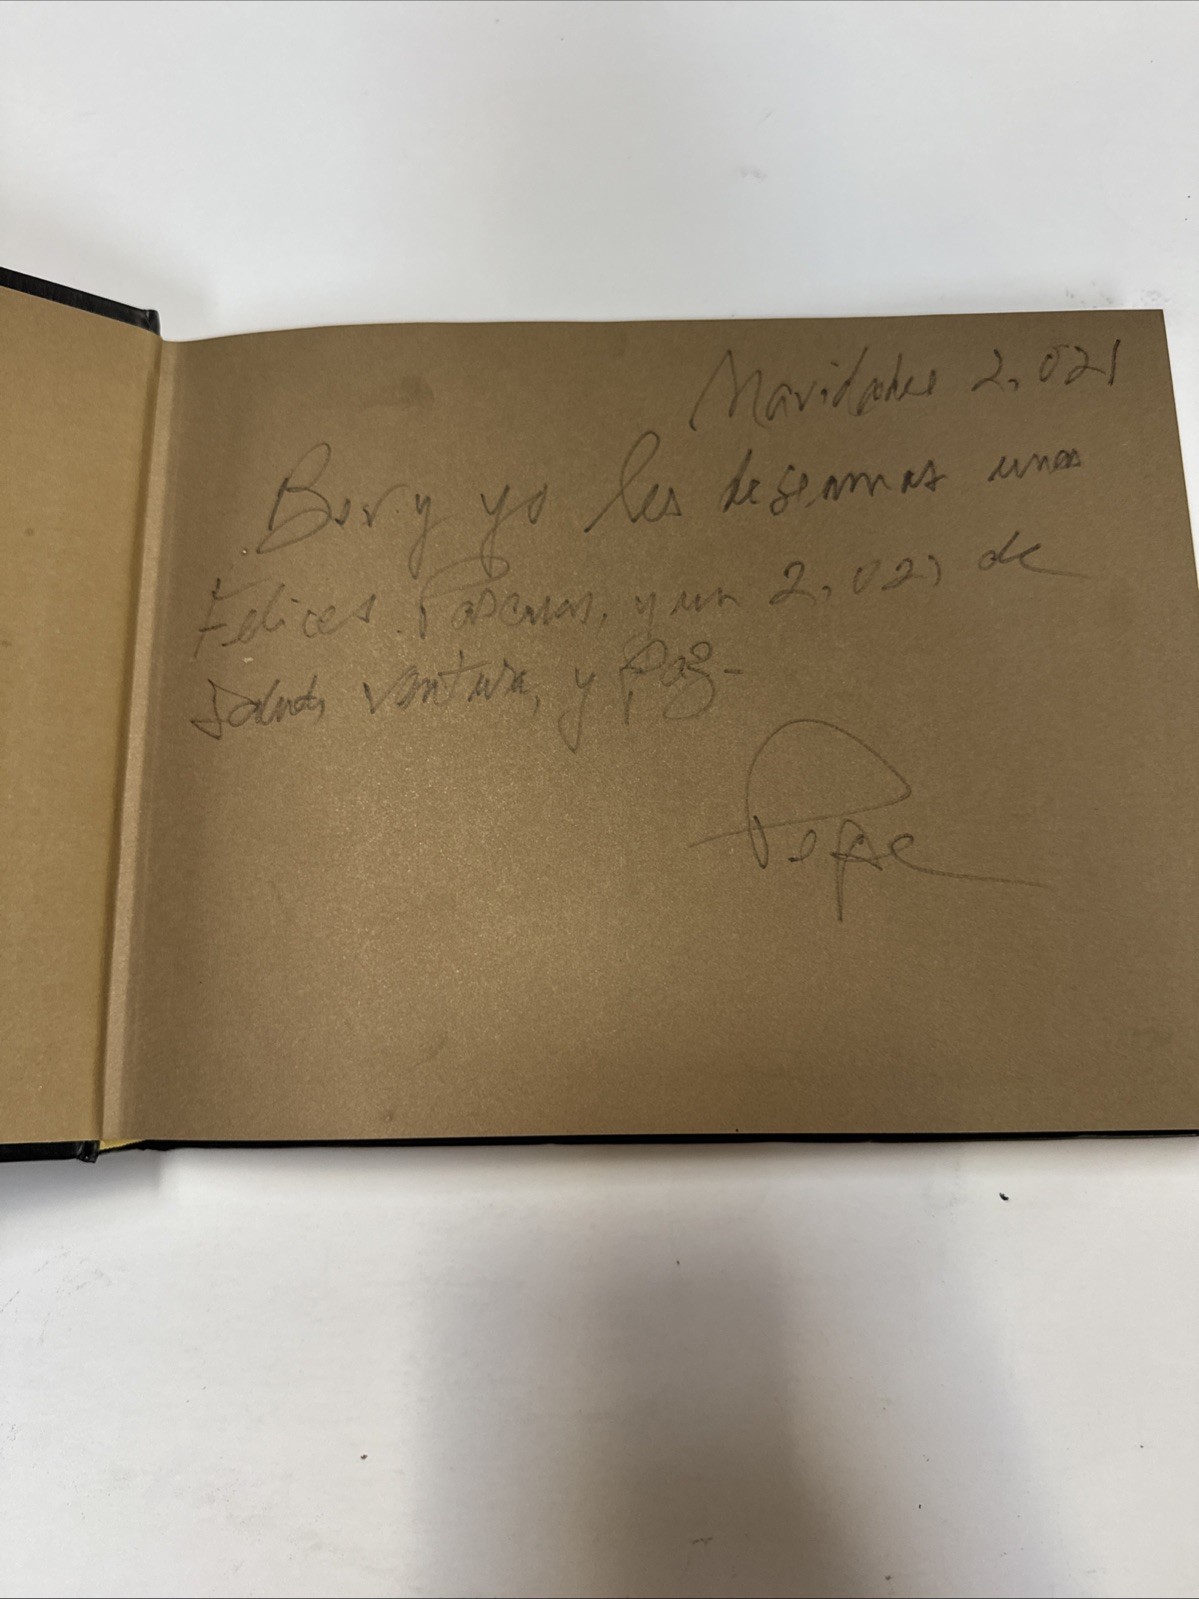 Navidades 2,021
Bev. y yo les deseamos unas
Felices Pascuas, y un 2,021 de
Salud, ventura, y Paz-
Pepe